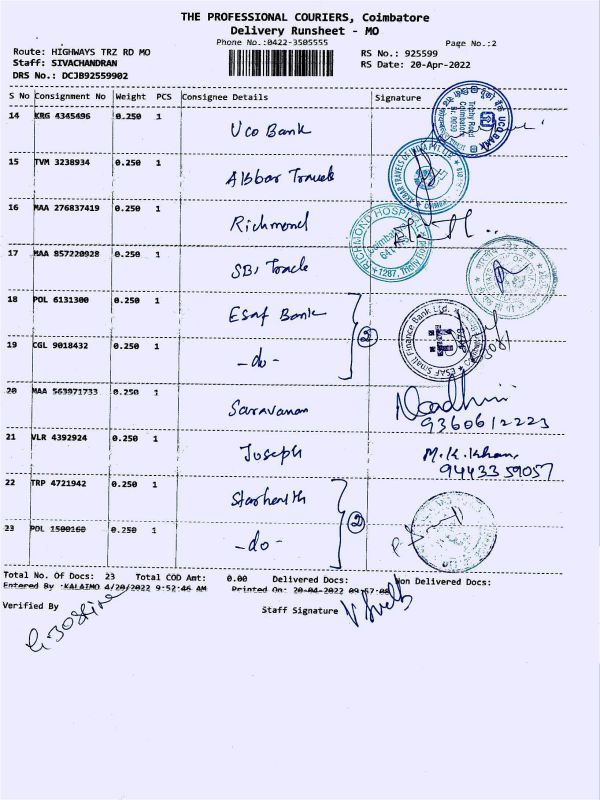 THE PROFESSIONAL COURIERS, Coimbatore
Delivery Runsheet - MO
Phone No.:0422-3505555
Page No.:2
Route: HIGHWAYS TRZ RD MO
RS No.: 925599
Staff: SIVACHANDRAN
RS Date: 20-Apr-2022
DRS No.: DCJB92559902
S No Consignment No Weight PCS Consignee Details Signature
14 KRG 4345496 0.250 1 Uco Bank
UCO BANK
Trichy Road
Coimbatore
15 TVM 3238934 0.250 1 Akbar Travels
16 MAA 276837419 0.250 1 Richmond
RICHMOND HOSPITAL
Coimbatore
1287, Trichy Road
17 MAA 857220928 0.250 1 SBI Trade
18 POL 6131300 0.250 1 Esaf Bank
2
ESAF Small Finance Bank Ltd.
19 CGL 9018432 0.250 1 -do-
20 MAA 563971733 0.250 1 Saravanan
9360612223
21 VLR 4392924 0.250 1 Joseph M.K.Khan,
9443359057
22 TRP 4721942 0.250 1 Starhealth
2
23 POL 1500160 0.250 1 -do-
Total No. Of Docs: 23 Total COD Amt: 0.00 Delivered Docs: Non Delivered Docs:
Entered By :KALAIMO 4/20/2022 9:52:46 AM Printed On: 20-04-2022 09:57:08
Verified By Staff Signature